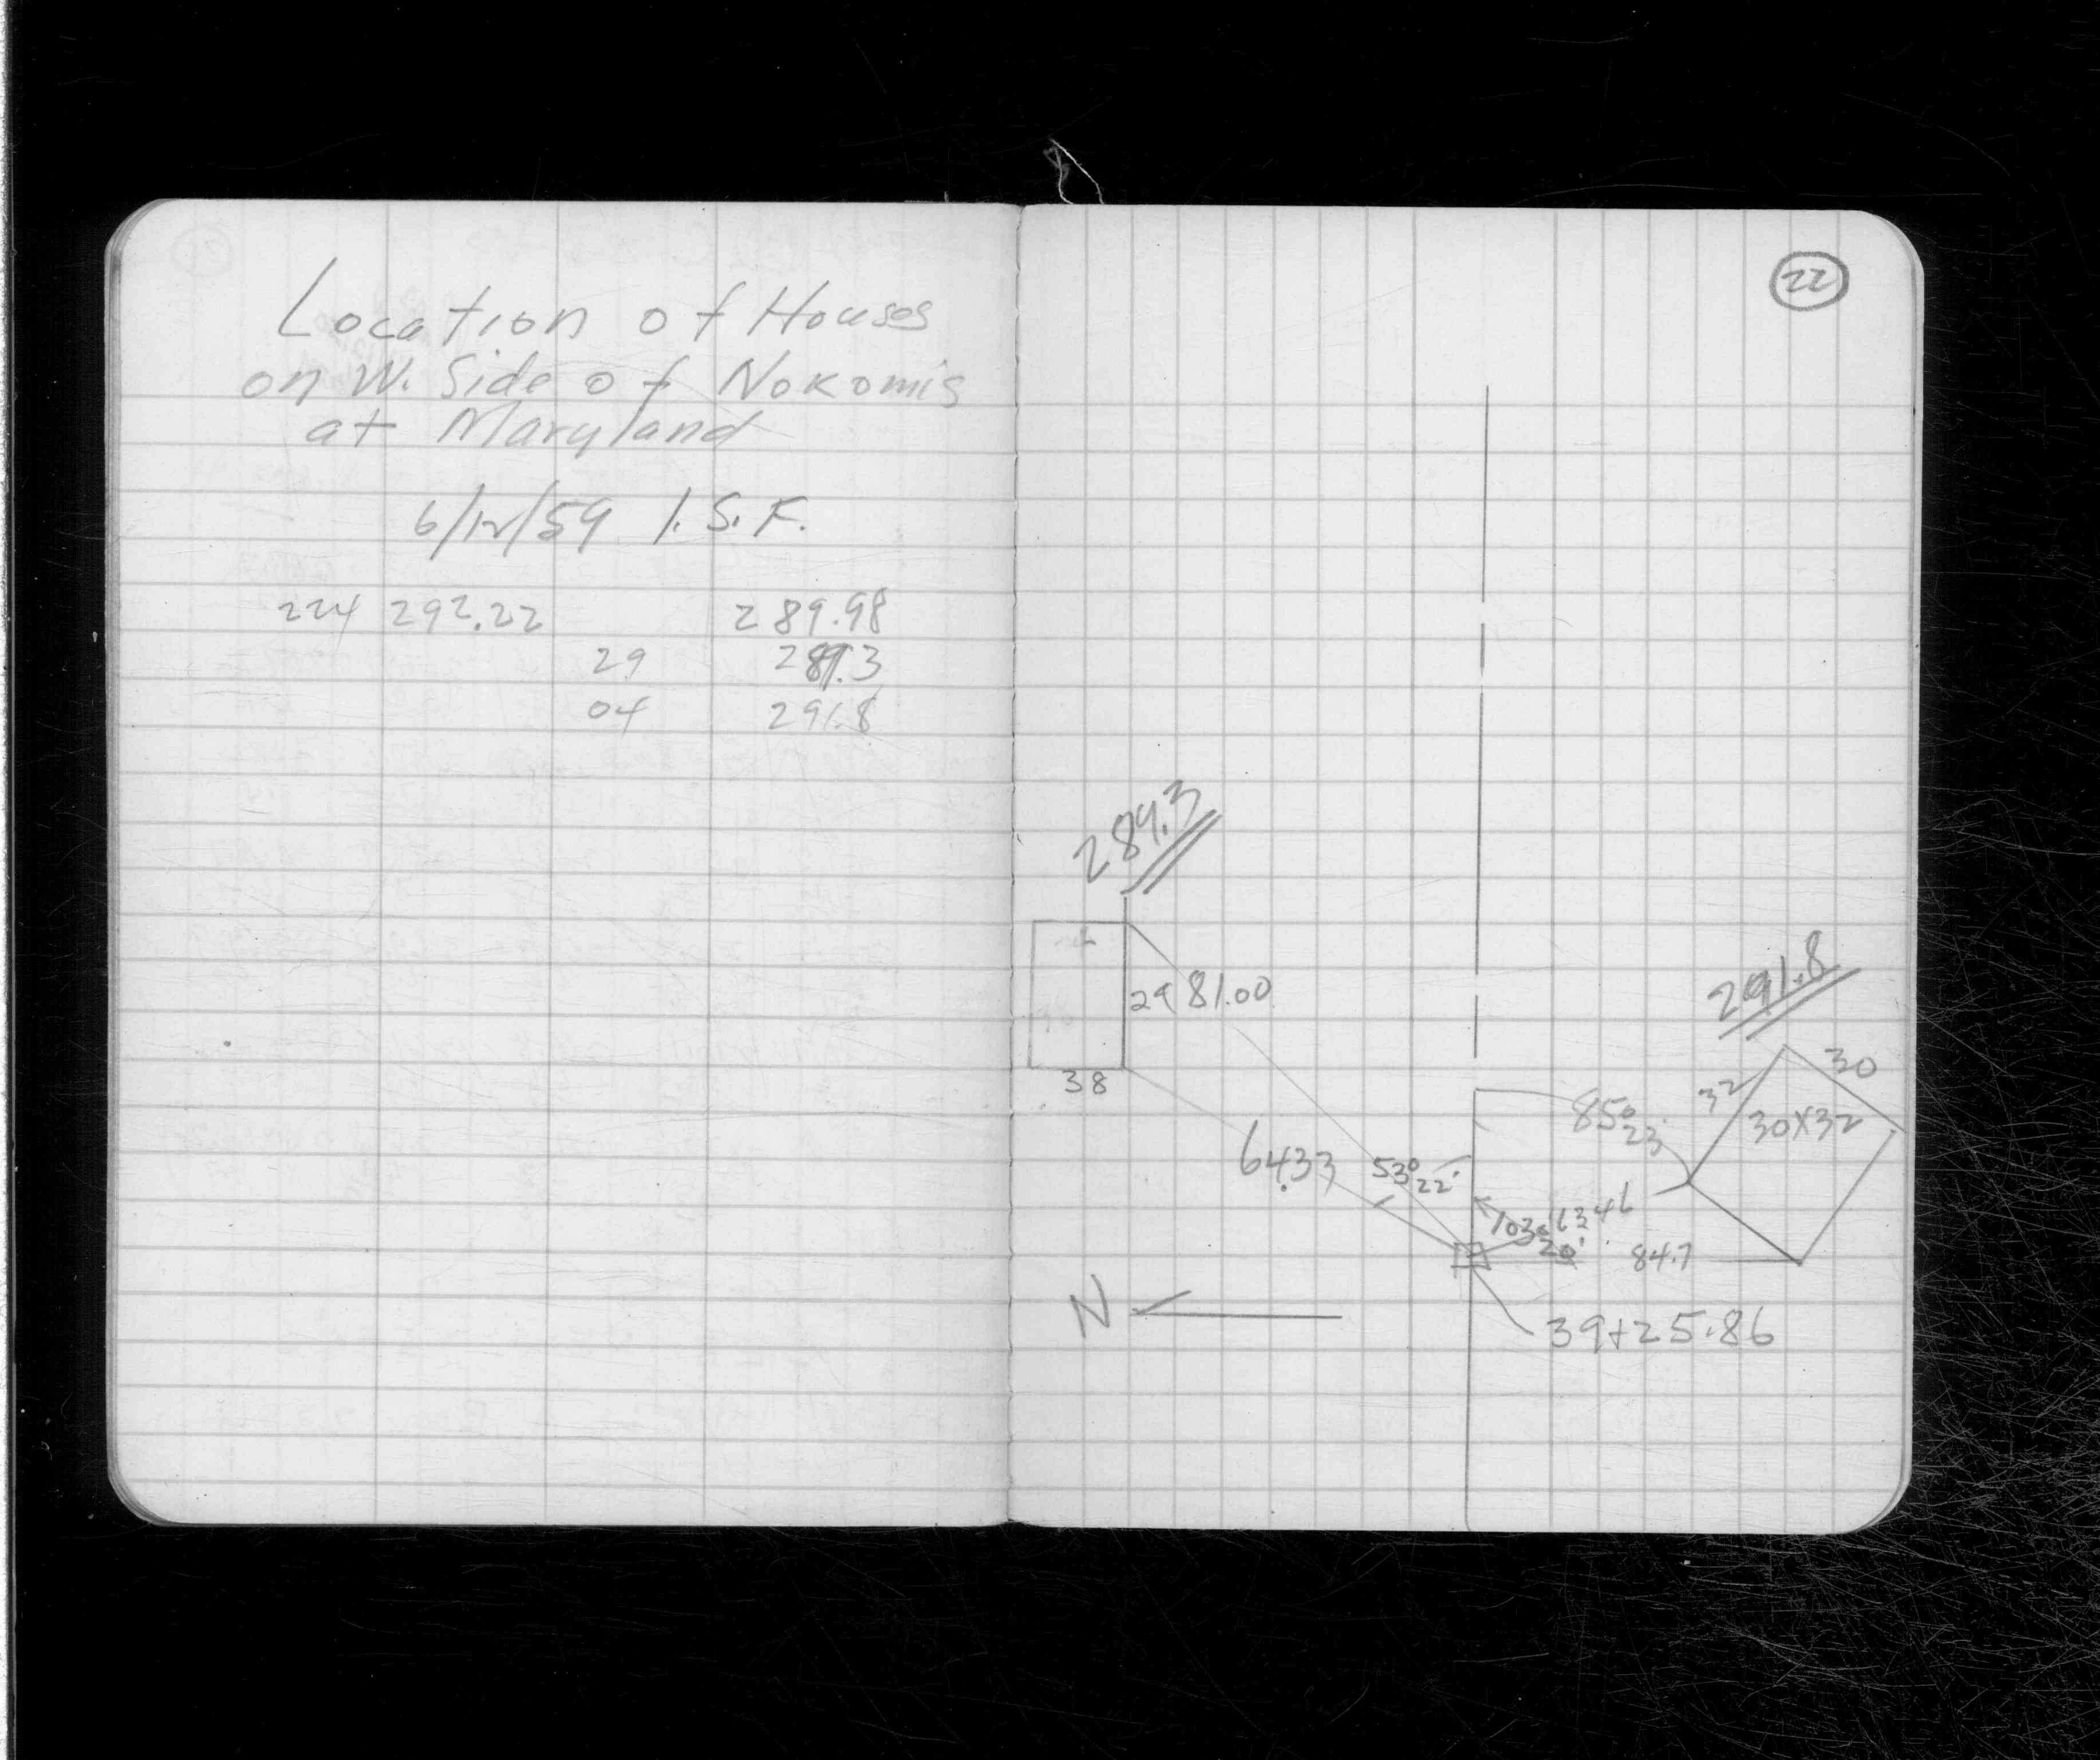 Location of Houses
on W. Side of Nokomis
at Maryland
6/12/59 I.S.F.
224 292.22 289.98
29 289.3
04 291.8
22
289.3
29 81.00
38
291.8
30
32
30X32
85° 23'
64.33
53° 22'
103° 20'
63.46
84.7
N
39+25.86